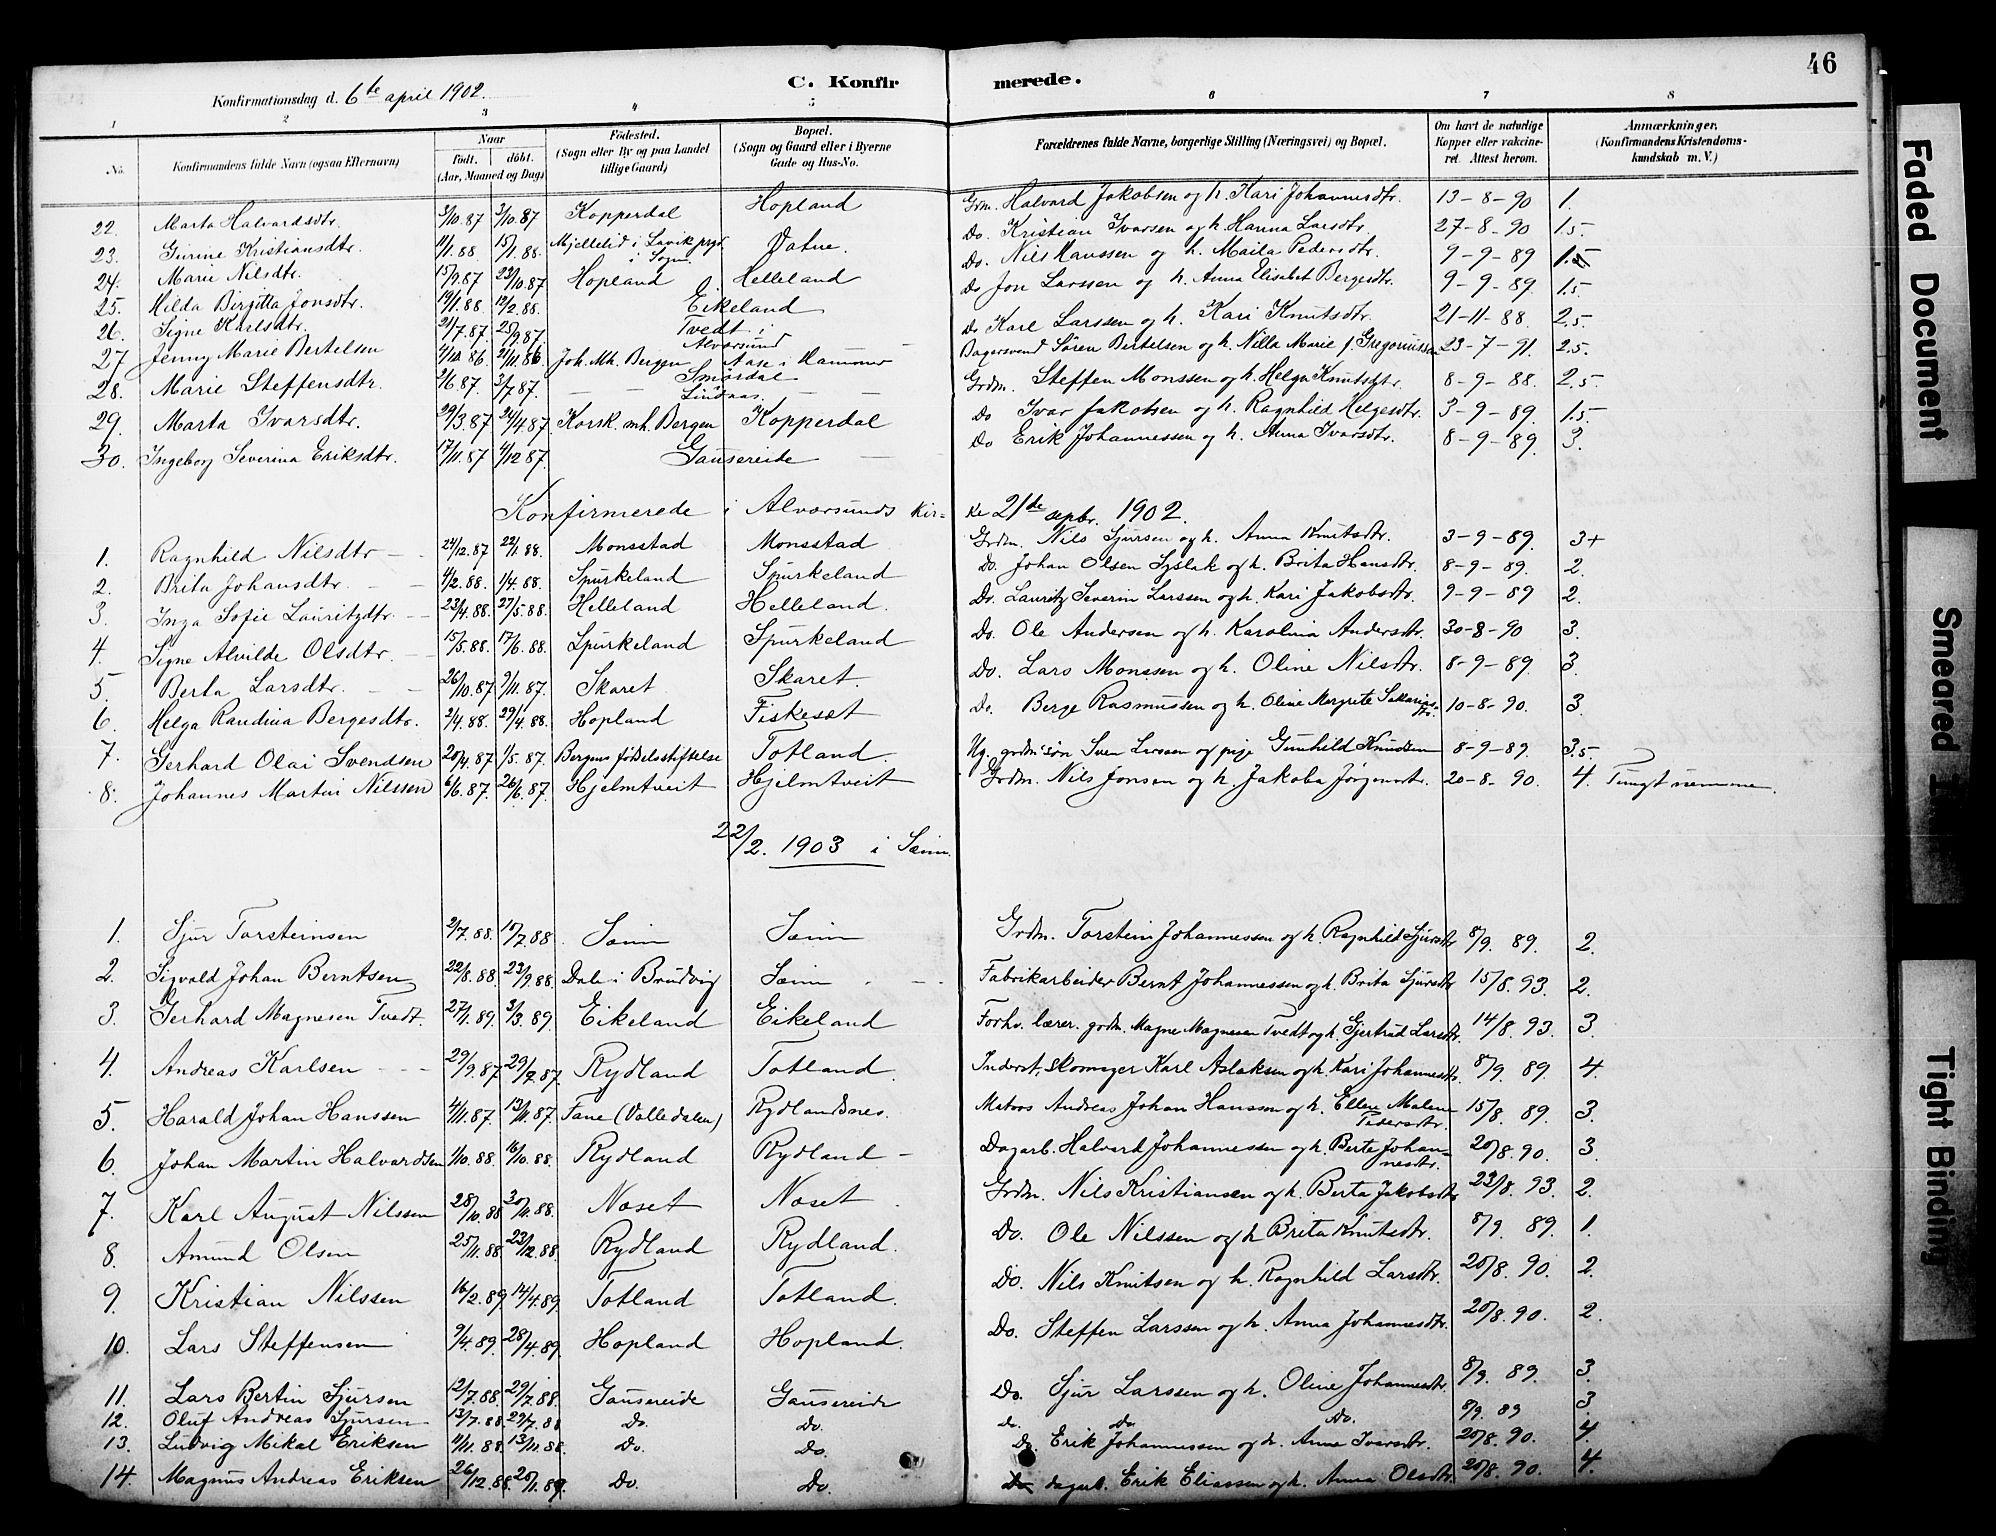 46
C. Konfirmerede.
Konfirmationsdag d. 6te april 1902.
1 2 3 4 5 6 7 8
No. Konfirmandens fulde Navn (ogsaa Efternavn) Naar födt. döbt. (Aar, Maaned og Dag) Födested. (Sogn eller By og paa Landet tillige Gaard) Bopæl. (Sogn og Gaard eller i Byerne Gade og Hus-No. Forældrenes fulde Navne, borgerlige Stilling (Næringsvei) og Bopæl. Om havt de naturlige Kopper eller vakcineret. Attest herom. Anmærkninger. (Konfirmandens Kristendomskundskab m. V.)
22. Marta Halvardsdtr. 3/10.87 3/10.87 Kopperdal Hopland Grdm. Halvard Jakobsen og h. Kari Johannesdtr. 13-8-90 1.
23. Gurine Kristiansdtr. 11/1.88 15/1.88. Mjellelid i Lavik prgd. i Sogn Vatne. Do. Kristian Ivarsen og h. Hanna Larsdtr. 27-8-90 1.5
24. Marie Nilsdtr. 15/9.87 23/10.87 Hopland Helleland Do. Nils Hanssen og h. Maila Pedersdtr. 9-9-89 1.5
25. Helda Birgitta Jonsdtr. 19/1.88 12/2.88. Eikeland Do Jon Larssen og h. Anna Elisabet Bergesdtr. 9-9-89. 1.5.
26. Signe Karlsdtr. 21/7.87 25/9.87 Tvedt i Alversund Do Karl Larssen og h. Kari Knutsdtr. 21-11-88. 2.5.
27 Jenny Marie Bertelsen 4/10 86 21/11.86 Joh. Mh. Bergen Aase i Hammer Bagersvend Sören Bertelsen og h. Nilla Marie f. Gregoriussen 23-7-91. 2.5.
28. Marie Steffensdtr. 2/6.87 3/7.87. Smördal Lindaas. Grdm. Steffen Monssen og h. Helga Knutsdtr. 8-9-88. 2.5.
29. Marta Ivarsdtr. 29/3.87 24/4.87 Korsk. mh. Bergen Kopperdal Do Ivar Jakobsen og h. Ragnhild Helgesdtr. 3-9-89. 1.5
30. Ingeborg Severina Eriksdtr. 17/11.87 4/12 87. Gausereide Do Erik Johannessen og h. Anna Ivarsdtr. 8-9-89. 3.
Konfirmerede i Alversunds Kirke 21de septbr. 1902.
1. Ragnhild Nilsdtr 24/12.87 22/1.88. Monsstad Monsstad Grdm. Nils Sjursen og h. Anna Knutsdtr. 3-9-89. 3+
2. Brita Johansdtr. 11/2.88. 1/4.88. Spurkeland Spurkeland Do. Johan Olsen Syslak og h. Brita Hansdtr. 8-9-89. 2.
3. Inga Sofie Lauritzdtr. 23/4.88. 27/5.88. Helleland Helleland. Do. Lauritz Severin Larssen og h. Kari Jakobsdtr. 9-9-89 2.
4. Signe Alvilde Olsdtr. 15/5.88. 17/6.88. Spurkeland Spurkeland Do. Ole Andersen og h. Karolina Andersdtr. 30-8-90 3.
5. Berta Larsdtr. 26/10.87 9/11.87. Skaret Skaret. Do. Lars Monssen og h. Oline Nilsdtr. 8-9-89. 3.
6. Helga Randina Bergesdtr. 2/4.88. 29/4.88. Hopland Fiskeset Do. Berge Rasmussen og h. Oline Margrete Sakariasdtr. 10-8-90. 3.
7. Gerhard Olai Svendsen 20/4.87 1/5.87. Bergens födselsstiftelse Totland. Ug. grdm. sön Sven Larssen og pige Gunhild Knudsen 8-9-89. 3.5
8. Johannes Martin Nilssen 6/6.87. 26/6.87. Hjelmtveit Hjelmtveit Grdm. Nils Jonsen og h. Jakoba Jørgensdtr. 20-8-90. 4. Tungt nemme.
22/2. 1903 i Seim.
1. Sjur Torsteinsen 2/7.88. 15/7.88 Seim Seim Grdm. Torstein Johannessen og h. Ragnhild Sjursdtr 8/9. 89. 2.
2. Sigvald Johan Berntsen 22/8.88 23/9.88 Dale i Bruvig Seim Fabrikarbeider Bernt Johannessen og h. Brita Sjursdtr 15/8.93. 2.
3. Gerhard Magnesen Tvedt. 27/1.89. 3/3.89 Eikeland Eikeland Forhv. lærer. grdm. Magne Magnesen Tvedt og h. Gjertrud Larsdtr. 14/8.93. 3.
4. Andreas Karlsen 29/9.87 87. Rydland Totland. Inderst, skomager Karl Aslaksen og h. Kari Johannesdtr. 8/9. 89. 4.
5. Harald Johan Hanssen 4/11.87. 13/11.87 Fane (Valledalen) Rydlandsnes. Matros Andreas Johan Hanssen og h. Ellen Malene Pedersdtr. 15/8. 89. 3.
6. Johan Martin Halvardsen 1/10.88. 16/10.88. Rydland Rydland Dagarb. Halvard Johannessen og h. Berta Johannesdtr. 20/8.90. 3.
7. Karl August Nilssen 28/10.88 30/11.88. Noset Noset Grdm. Nils Kristiansen og h. Berta Jakobsdtr 23/8.93. 2.
8. Amund Olsen 25/11.88. 23/12.88. Rydland Rydland. Do. Ole Nilssen og h Brita Knutsdtr. 8/9. 89. 1.
9. Kristian Nilssen 16/2.89 14/4.89. Totland Totland. Do. Nils Knutsen og h. Ragnhild Larsdtr. 20/8.90. 2.
10. Lars Steffensen 9/4.89. 28/4.89. Hopland Hopland. Do. Steffen Larssen og h. Anna Johannesdtr. 20/8.90. 2.
11. Lars Bertin Sjursen 12/7.88. 29/7.88. Gausereide Gausereide Do. Sjur Larssen og h. Oline Johannesdtr. 8/9. 89. 3.
12. Oluf Andreas Sjursen 13/7.88. 29/7.88 Do. Do. do. Do Do. 8/9. 89 3.
13. Ludvig Mikal Eriksen 11/11.88. 13/11.88. Do. Do. Do. Erik Johannessen og h. Anna Ivarsdtr. 20/8.90. 4.
14. Magnus Andreas Eriksen 26/12.88. 20/1.89. Do. Do. Do dagarb. Erik Eliassen og h. Anna Olsdtr. 20/8.90. 4.
Faded Document
Smeared
Tight Binding